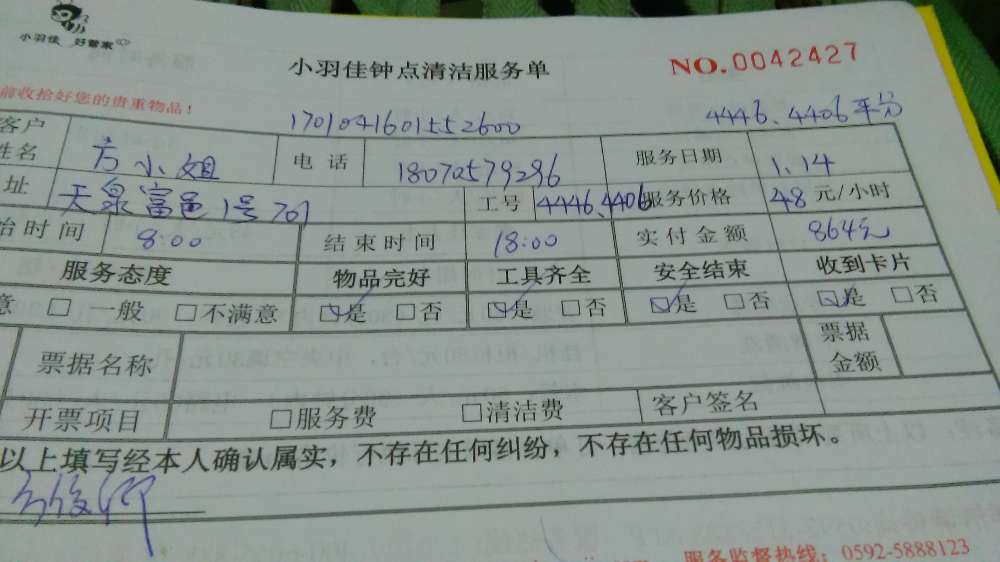 小羽佳 好管家
小羽佳钟点清洁服务单 NO.0042427
前收拾好您的贵重物品!
1701041601552600 4446、4406平分
客户姓名 方小姐 电话 18070579286 服务日期 1.14
址 天泉富邑1号701 工号 4446、4406 服务价格 48元/小时
始时间 8:00 结束时间 18:00 实付金额 864元
服务态度 物品完好 工具齐全 安全结束 收到卡片
意 □一般 □不满意 ☑是 □否 ☑是 □否 ☑是 □否 ☑是 □否
票据名称 票据金额
开票项目 □服务费 □清洁费 客户签名
以上填写经本人确认属实，不存在任何纠纷，不存在任何物品损坏。
服务监督热线：0592-5888123